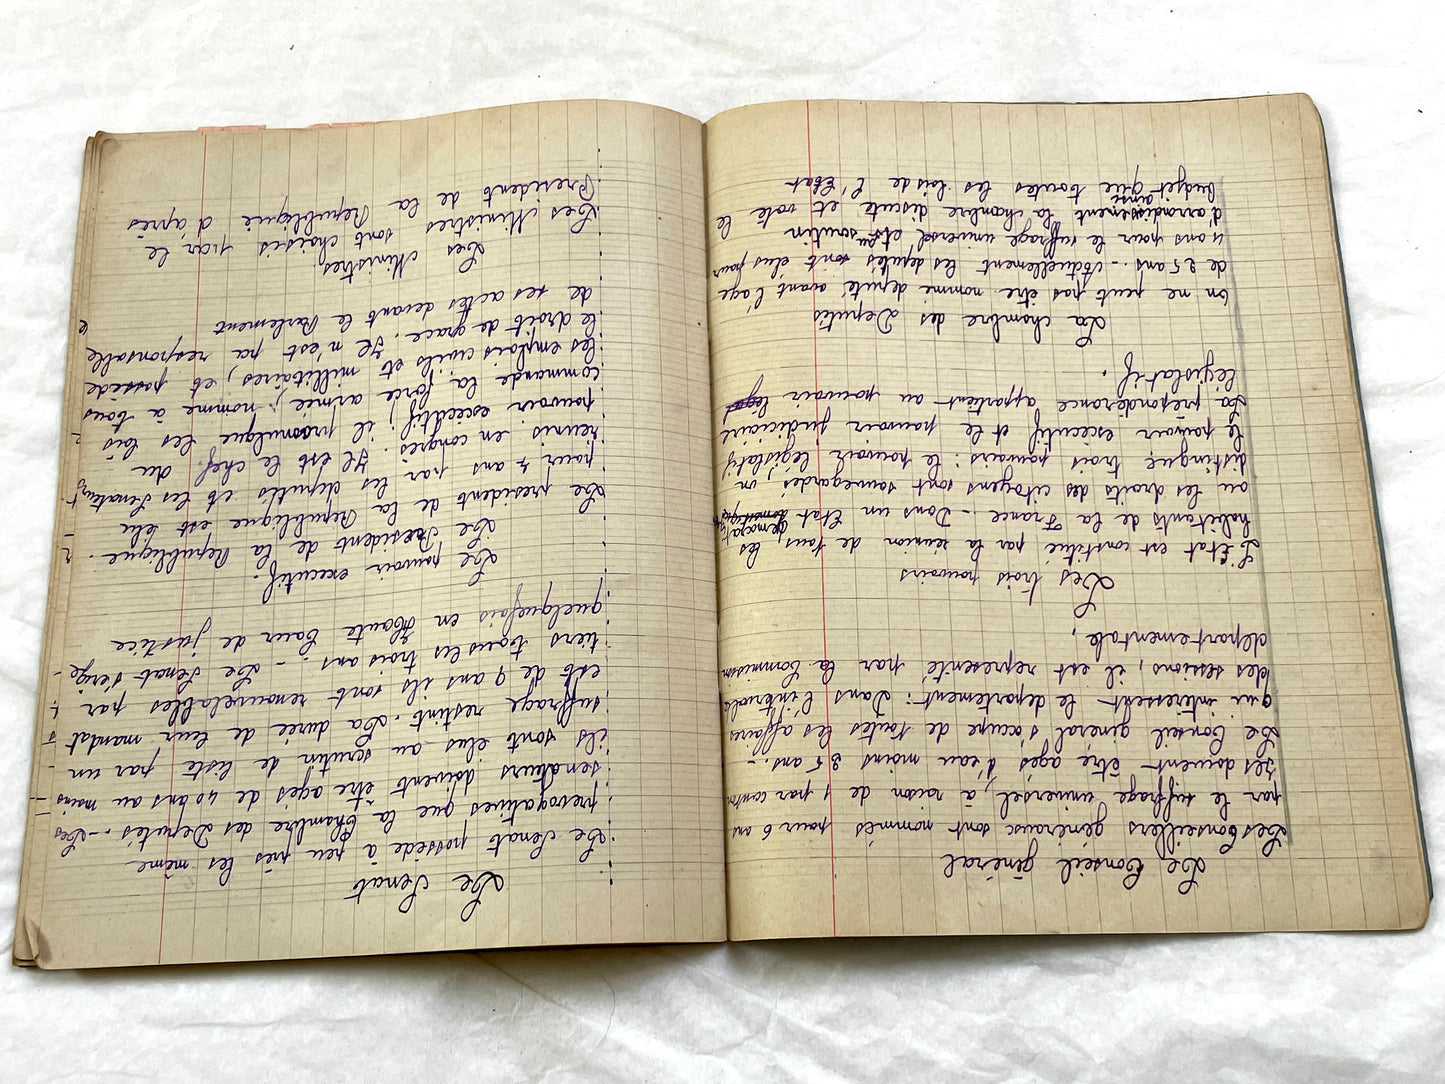 Le Conseil général
Les Conseillers généraux sont nommés pour 6 ans
par le suffrage universel, à raison de 1 par canton
Ils doivent être agés d'eau moins 25 ans. -
Le Conseil général s'occupe de toutes les affaires
qui interessent le departement : Dans l'intervalle
des sessions, il est representé par la Commission
départementale,
Les trois pouvoirs
L'Etat est constitué par la réunion de tous, les
habitants de la France. - Dans un Etat démocratique
ou les droits des citoyens sont sauvegardés on,
distingue trois pouvoirs : le pouvoir législatif
le pouvoir exécutif et le pouvoir judiciaire
La préponderance appartient au pouvoir
législatif.
La chambre des Députés
On ne peut pas être nommé député avant l'age
de 25 ans. - Actuellement les députés sont élus pour
4 ans pour le suffrage universel et au scrutin
d'arrondissement la chambre discute et vote le
budget ainsi que toutes les lois de l'Etat
Le Senat
Le Senat possède à peu près les même
prerogatives que la Chambre des Deputés. - Les
senateurs doivent être agés de 40 ans au moins
ils sont elus au scrutin de liste par un
suffrage restint. La durée de leur mandat
est de 9 ans ils sont renouvelables par
tiers tous les trois ans. - Le Senat s'erige
quelquefois en Haute Cour de justice
Le pouvoir executif.
Le President de la Republique.
Le president de la Republique est élu
pour 7 ans par les députés et les Senateurs
reunis en congres. Il est le chef du
pouvoir excécutif, il promulgue les lois
commande la force armée, nomme à tous
les emplois civils et millitaires, et possède
le droit de grace. Il n'est pa responsable
de ses actes devant le Parlement
Les Ministres,
Les Ministres sont choisis par le
President de la Republique d'après